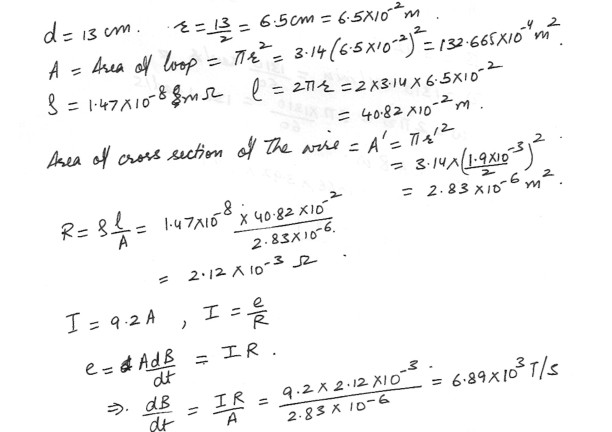 d = 13 cm. r = 13/2 = 6.5 cm = 6.5×10⁻² m.
A = Area of loop = πr² = 3.14 (6.5×10⁻²)² = 132.665×10⁻⁴ m²
ρ = 1.47×10⁻⁸ mΩ l = 2πr = 2×3.14×6.5×10⁻²
= 40.82×10⁻² m.
Area of cross section of The wire = A' = πr'²
= 3.14×(1.9×10⁻³/2)²
= 2.83×10⁻⁶ m².
R = ρ l/A = 1.47×10⁻⁸ × 40.82×10⁻² / 2.83×10⁻⁶
= 2.12×10⁻³ Ω.
I = 9.2 A, I = e/R
e = A dB/dt = IR.
⇒ dB/dt = IR/A = 9.2×2.12×10⁻³ / 2.83×10⁻⁶ = 6.89×10³ T/s